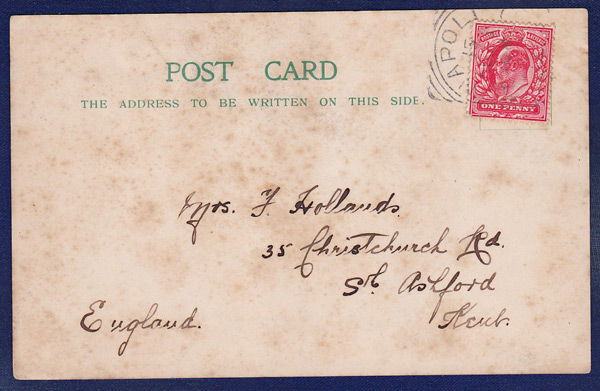 APOLI
POSTAGE REVENUE
ONE PENNY
POST CARD
THE ADDRESS TO BE WRITTEN ON THIS SIDE.
Mrs. F. Hollands.
35 Christchurch Rd.
Sth Ashford
Kent.
England.